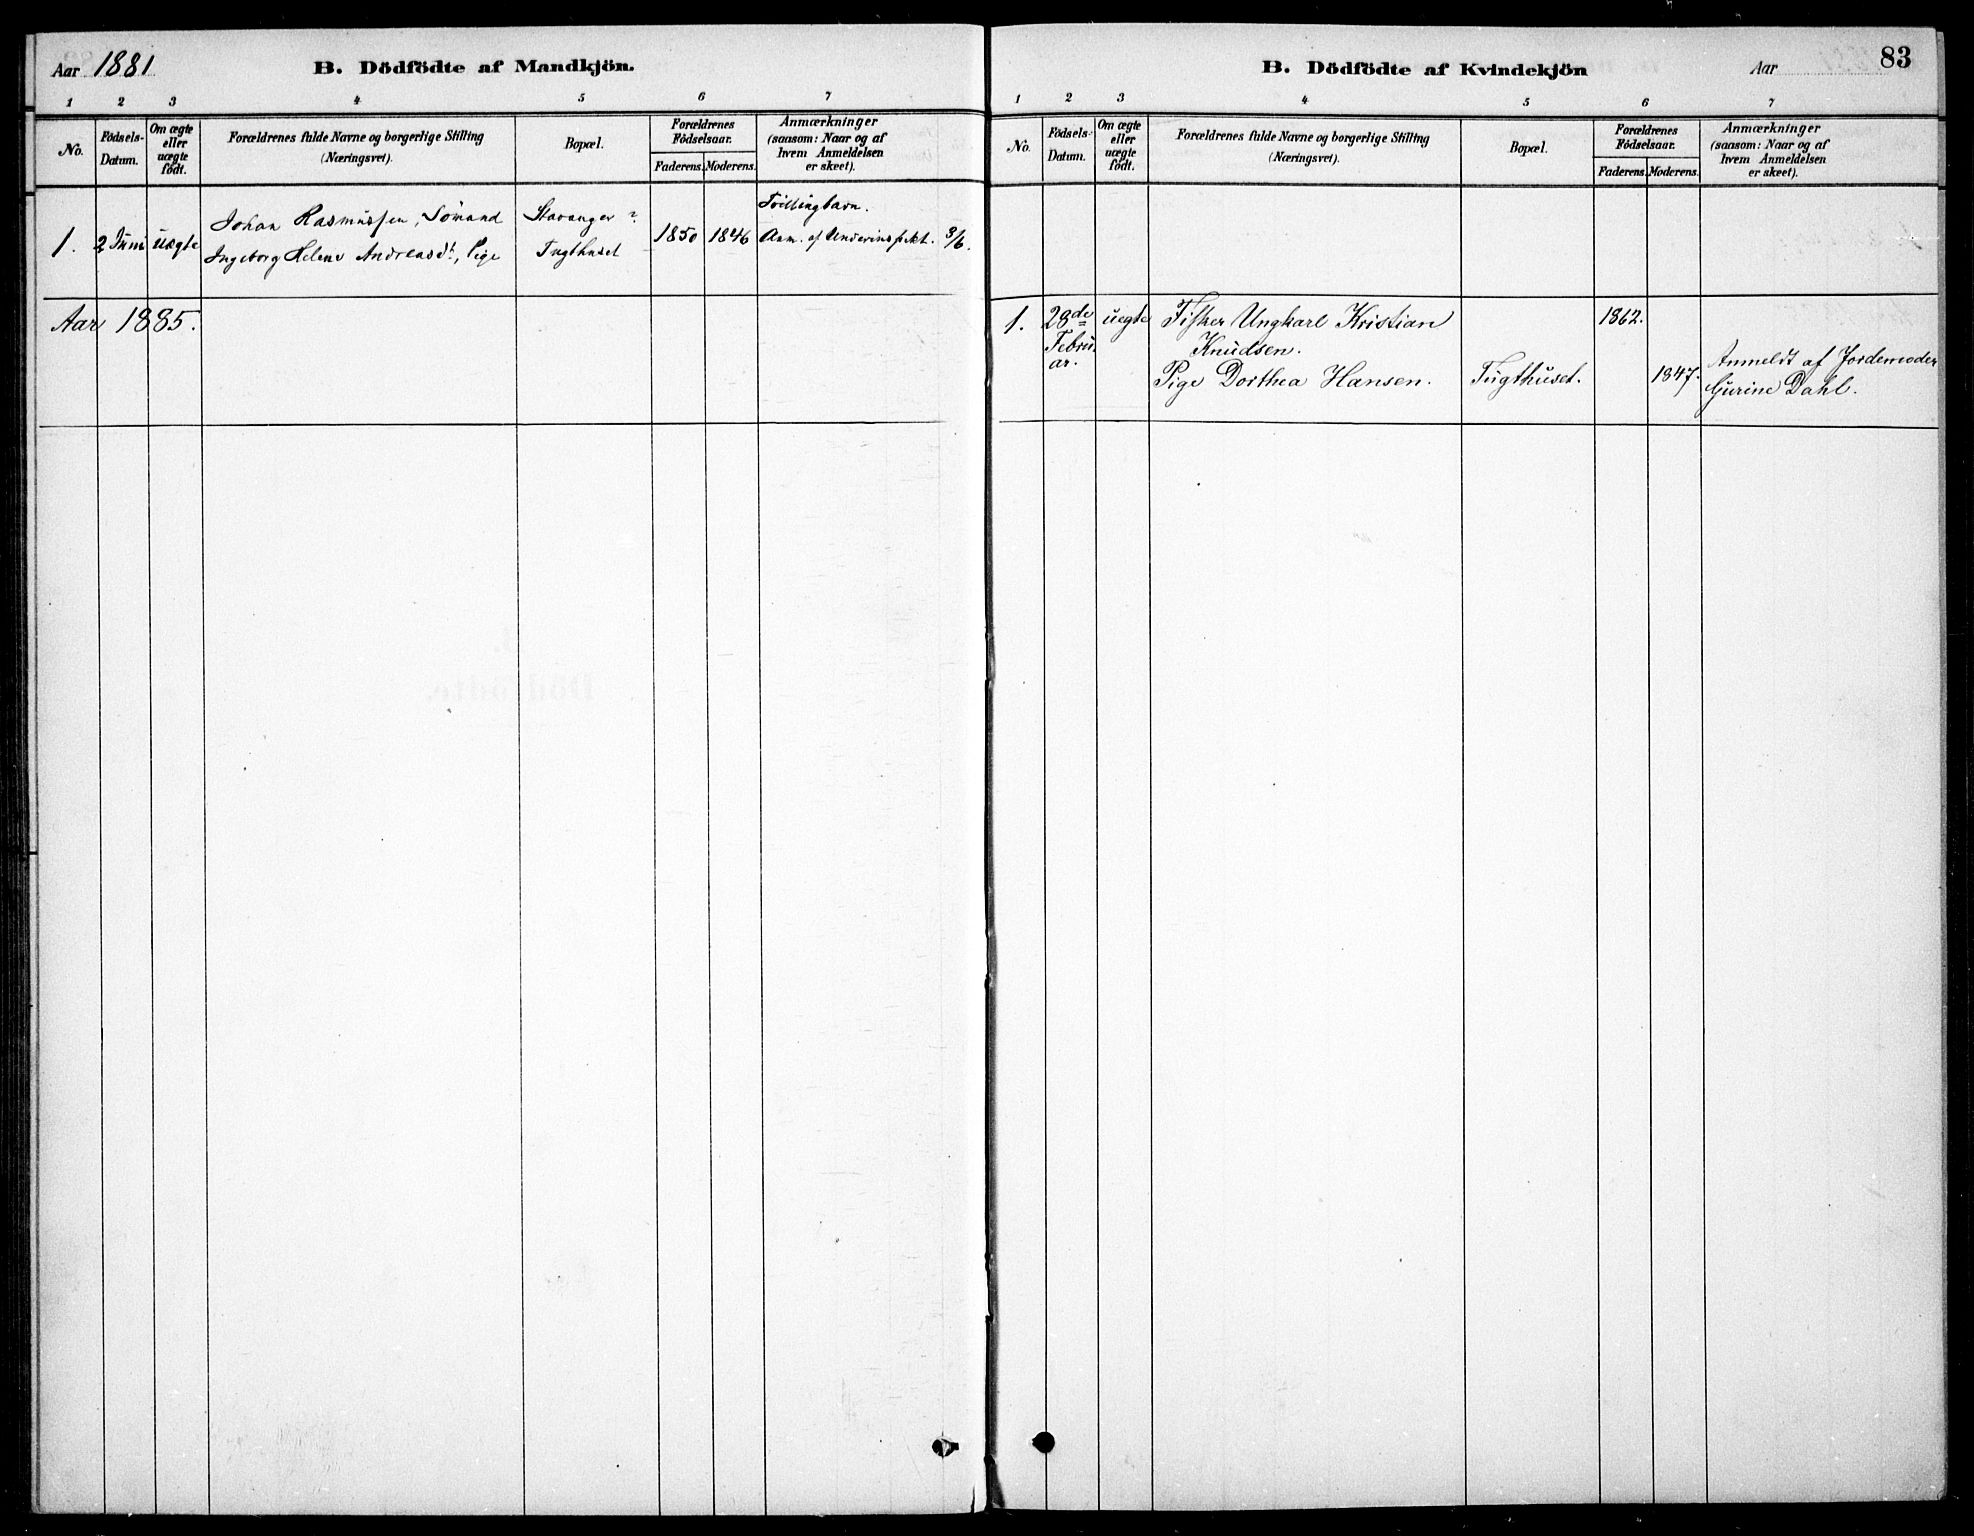 Aar 1881
B. Dödfödte af Mandkjön.
1 2 3 4 5 6 7
No.
Födsels-
Datum.
Om ægte
eller
uægte
födt.
Forældrenes fulde Navne og borgerlige Stilling
(Næringsvei).
Bopæl.
Forældrenes
Födselsaar.
Faderens. Moderens.
Anmærkninger
(saasom: Naar og af
hvem Anmeldelsen
er skeet).
1.
2 Juni
uægte
Johan Rasmussen, Sömand
Ingeborg Helene Andreasdt, Pige
Stavanger ?
Tugthuset
1850
1846
Tvillingbarn.
Anm. af Underinspekt. 3/6.
Aar 1885.
83
B. Dödfödte af Kvindekjön
Aar
1 2 3 4 5 6 7
No.
Födsels-
Datum.
Om ægte
eller
uægte
födt.
Forældrenes fulde Navne og borgerlige Stilling
(Næringsvei).
Bopæl.
Forældrenes
Födselsaar.
Faderens. Moderens.
Anmærkninger
(saasom: Naar og af
hvem Anmeldelsen
er skeet).
1.
28de
Febru.
ar.
uegte
Fisker Ungkarl Kristian
Knudsen.
Pige Dorthea Hansen.
Tugthuset.
1862.
1847.
Anmeldt af Jordemoder
Gurine Dahl.